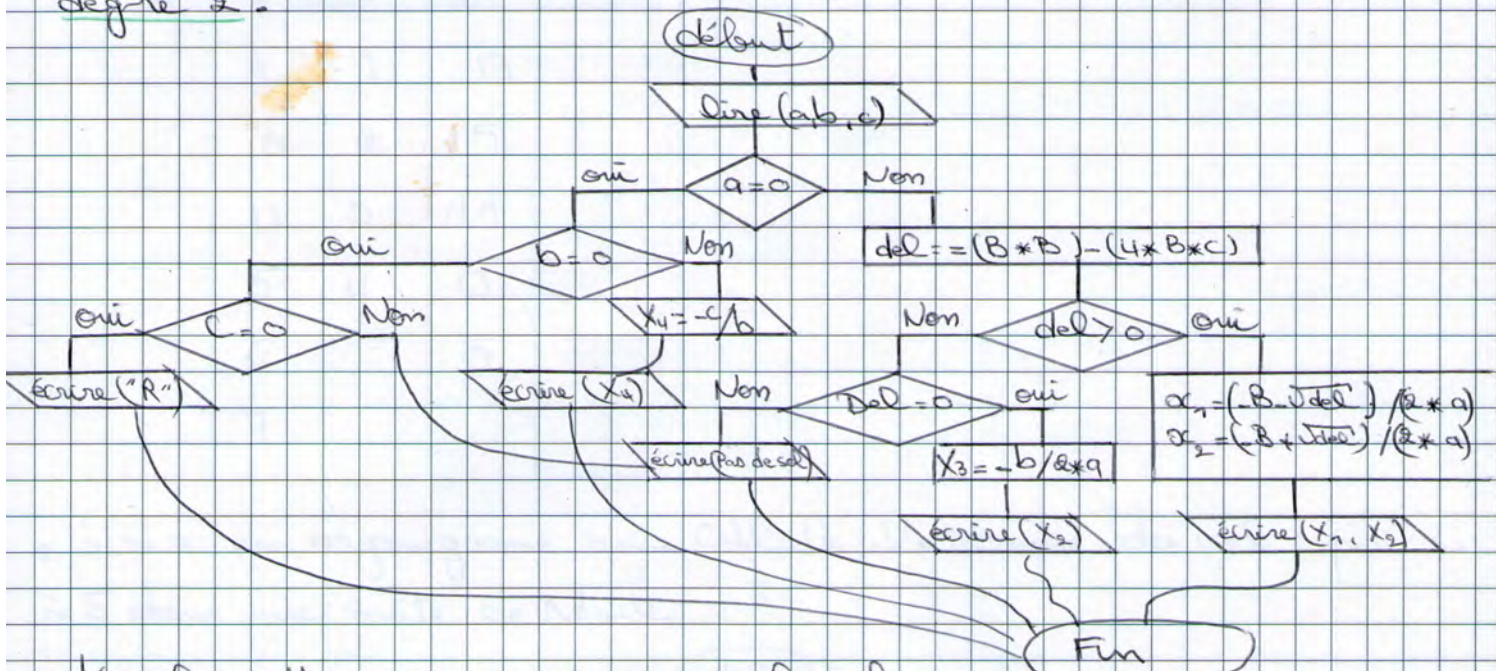 degré 2.
début
lire (a,b,c)
a=0
oui
Non
b=0
oui
Non
del:=(B*B)-(4*B*C)
C=0
oui
Non
X₄=-c/b
del>0
Non
oui
écrire("R")
écrire(X₄)
Del=0
Non
oui
x₁=(-B-√del)/(2*a)
x₂=(-B*√del)/(2*a)
écrire(Pas de sol)
X₃=-b/2*a
écrire(X₂)
écrire(X₁,X₂)
Fin